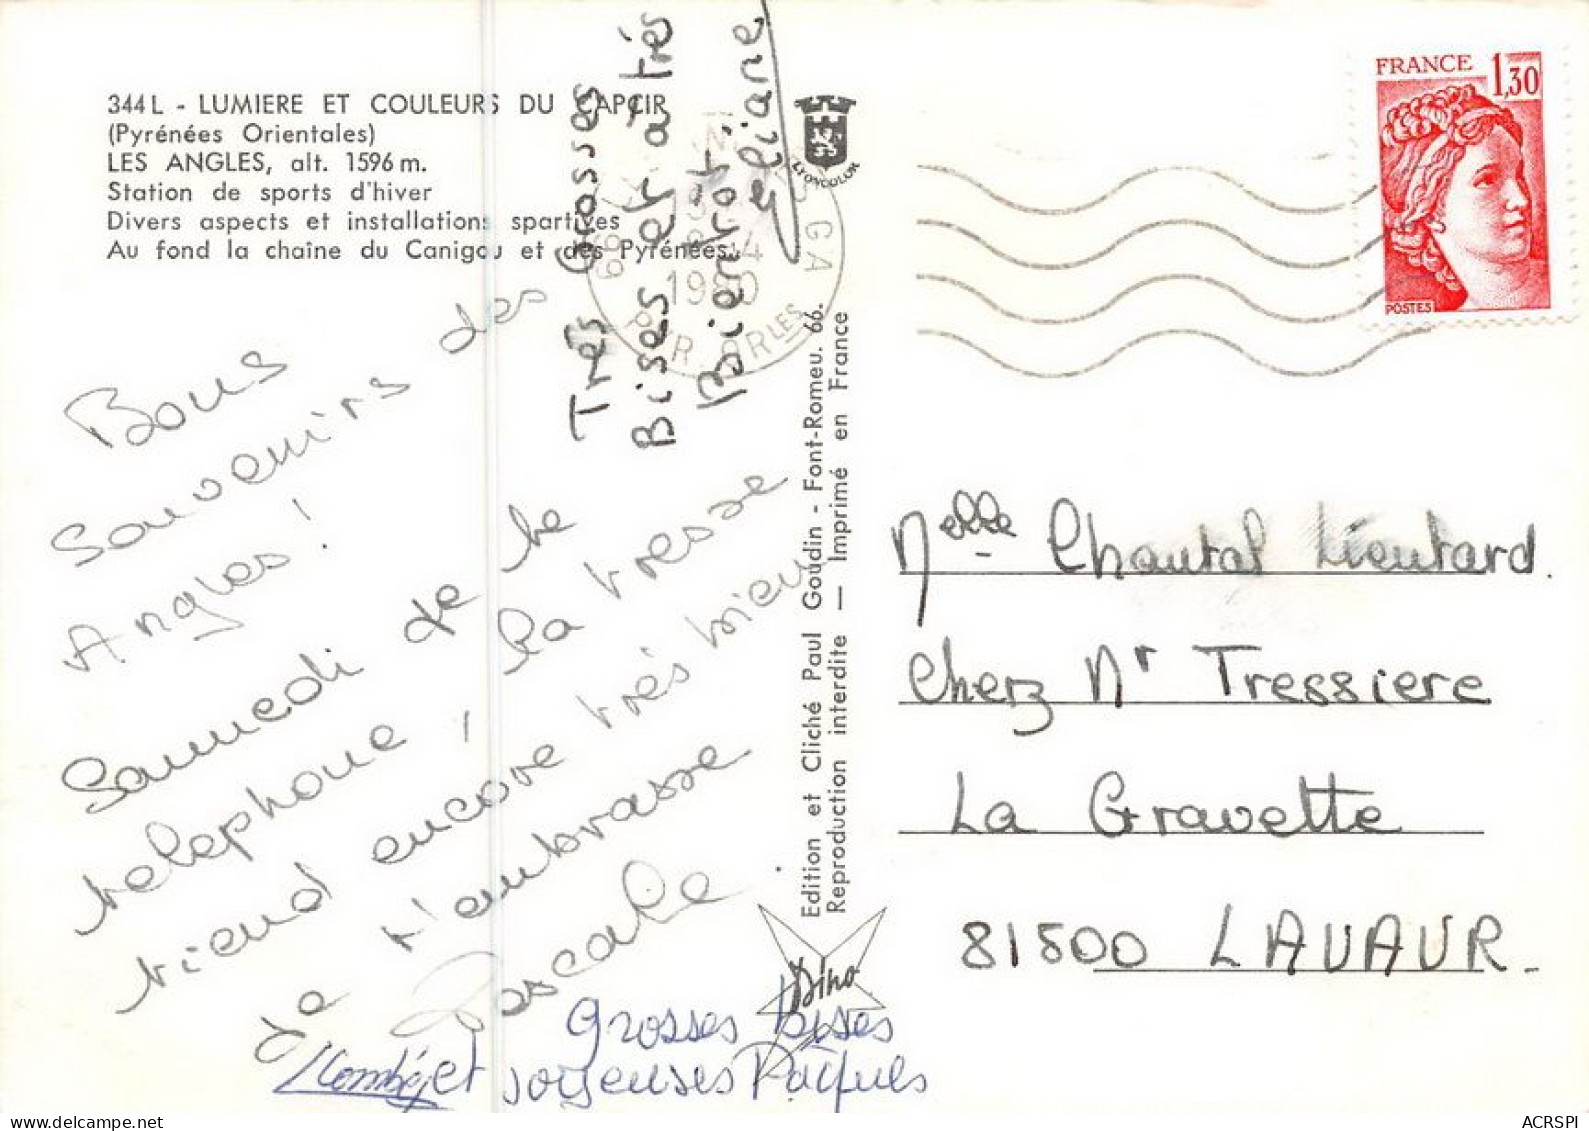 344 L - LUMIERE ET COULEURS DU CAPCIR
(Pyrénées Orientales)
LES ANGLES, alt. 1596 m.
Station de sports d'hiver
Divers aspects et installations sportives
Au fond la chaîne du Canigou et des Pyrénées.
Bons
Souvenirs des
Angles !
Samedi de he
telephone, la tresse
tiend encore très bien
Je t'embrasse
Pascale
Très Grosses
Bises et à très
Bientôt.
Eliane
Grosses bises
et joyeuses Pâques
LYONCOLOR
Edition et Cliché Paul Goudin - Font-Romeu. 66.
Reproduction interdite — Imprimé en France
Dino
1980
PYR. ORLES
FRANCE 1,30
POSTES
Melle Chantal Lieutard.
Cherz Mr Tressiere
La Gravette
81500 LAVAUR.
ACRSPI